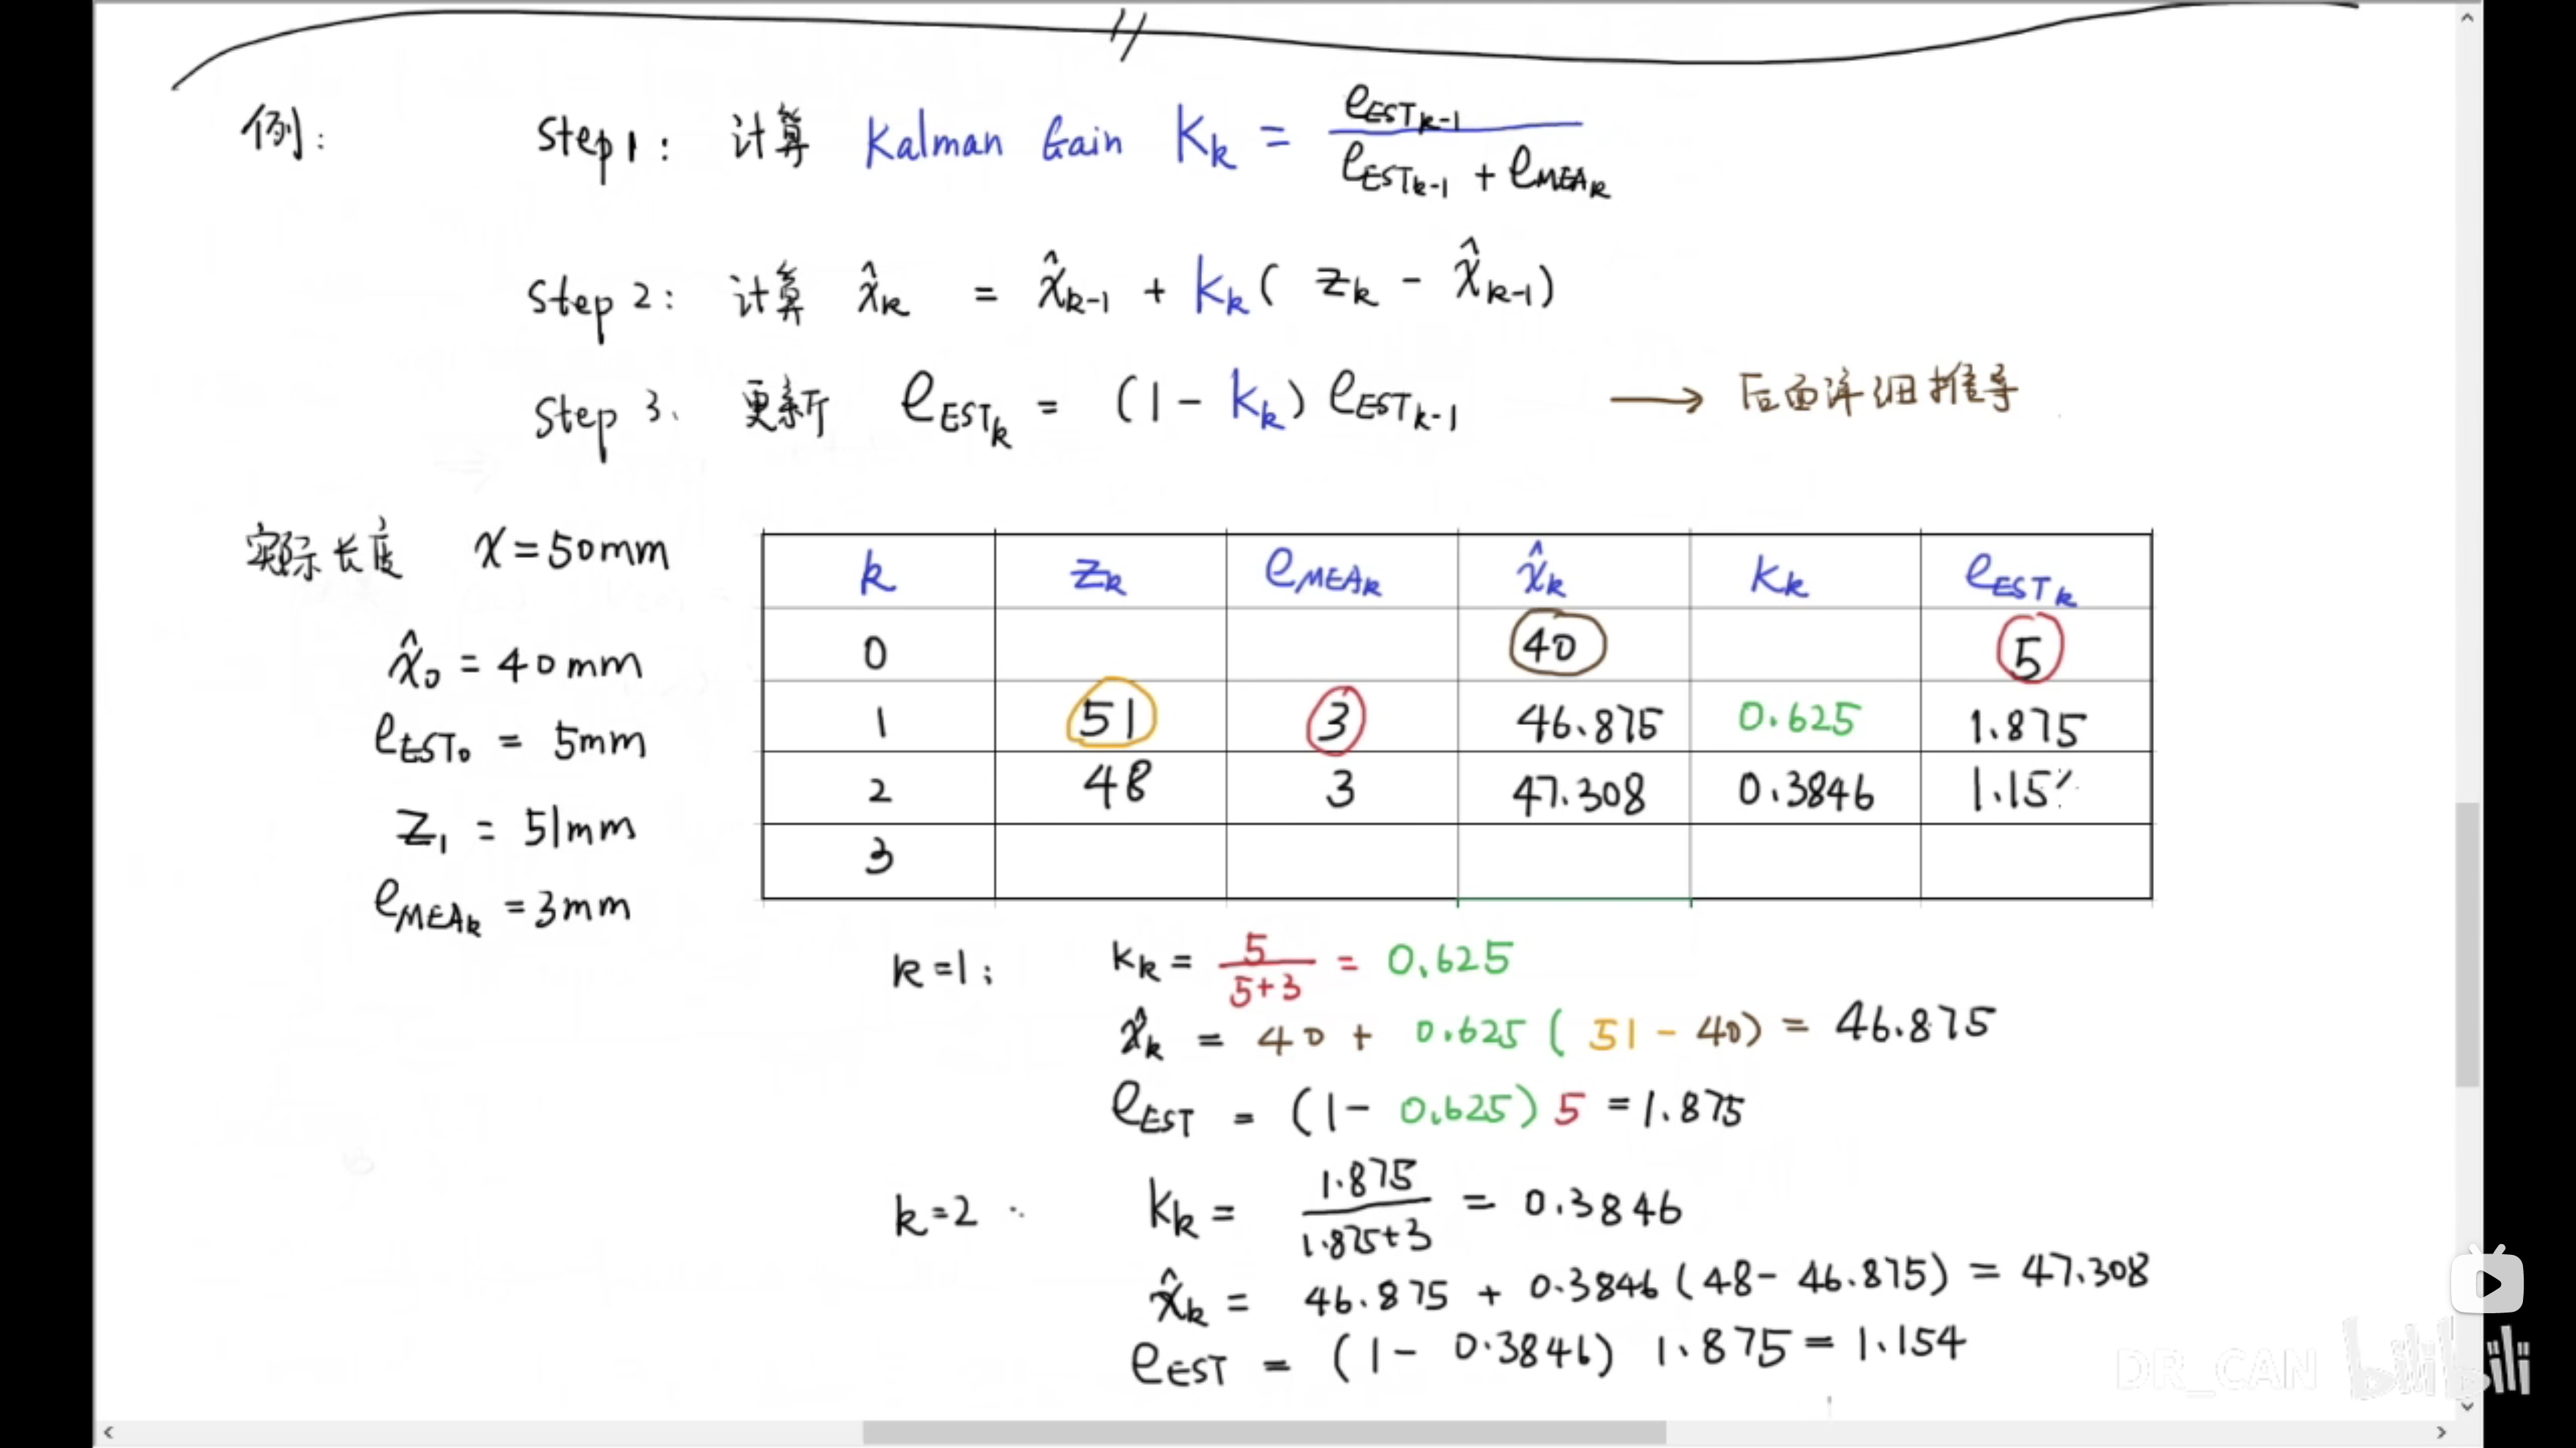 例: Step 1: 计算 Kalman Gain K_k = e_EST_k-1 / (e_EST_k-1 + e_MEA_k)
Step 2: 计算 x̂_k = x̂_k-1 + K_k ( z_k - x̂_k-1 )
Step 3、 更新 e_EST_k = (1 - K_k) e_EST_k-1 → 后面详细推导
实际长度 x = 50mm
x̂_0 = 40mm
e_EST_0 = 5mm
z_1 = 51mm
e_MEA_k = 3mm
k z_k e_MEA_k x̂_k K_k e_EST_k
0 40 5
1 51 3 46.875 0.625 1.875
2 48 3 47.308 0.3846 1.15
3
k=1: K_k = 5 / (5+3) = 0.625
x̂_k = 40 + 0.625 ( 51 - 40) = 46.875
e_EST = (1 - 0.625) 5 = 1.875
k=2 : K_k = 1.875 / (1.875+3) = 0.3846
x̂_k = 46.875 + 0.3846 (48 - 46.875) = 47.308
e_EST = (1 - 0.3846) 1.875 = 1.154
DR_CAN bilibili